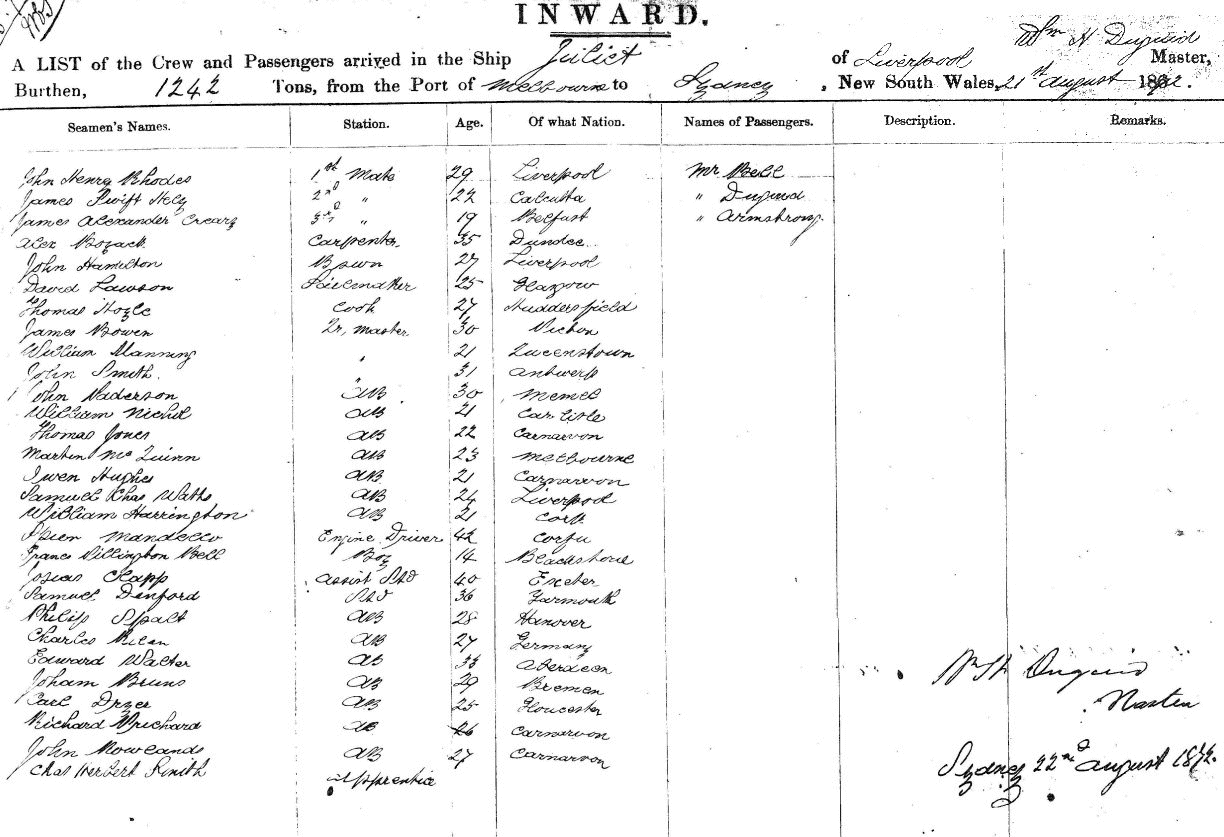 INWARD.
Wm H Duguid
A LIST of the Crew and Passengers arrived in the Ship Juliet of Liverpool Master,
Burthen, 1242 Tons, from the Port of Melbourne to Sydney, New South Wales, 21st August 1872.
Seamen's Names. Station. Age. Of what Nation. Names of Passengers. Description. Remarks.
John Henry Rhodes 1st Mate 29 Liverpool Mr Bell
James Swift Hely 2nd " 22 Calcutta " Duguid
James Alexander Creary 3rd " 19 Belfast " Armstrong
Alex Bozack Carpenter 35 Dundee
John Hamilton Bswn 27 Liverpool
David Lawson Sailmaker 25 Glasgow
Thomas Hoyle Cook 27 Huddersfield
James Bowen Qr, Master 30
William Manning " 21 Queenstown
John Smith " 31 Antwerp
John Paderson AB 30 Memel
William Nichol AB 21 Carlisle
Thomas Jones AB 22 Carnarvon
Martin McQuinn AB 23 Melbourne
Owen Hughes AB 21 Carnarvon
Samuel Chas Watts AB 24 Liverpool
William Harrington AB 21 Cork
Engine Driver 42 Corfu
Bell Boy 14
Josias Clapp Assist Std 40 Exeter
Samuel Denford Std 36 Yarmouth
Philip Spalt AB 28 Hanover
Charles AB 27 Germany
Edward Walter AB 33 Aberdeen
Joham Bruns AB 29 Bremen
Carl Dryer AB 25 Gloucester
Richard Prichard AB 26 Carnarvon
John Rowlands AB 27 Carnarvon
Chas Herbert Smith Apprentice
Wm H Duguid
Master
Sydney 22nd August 1872.